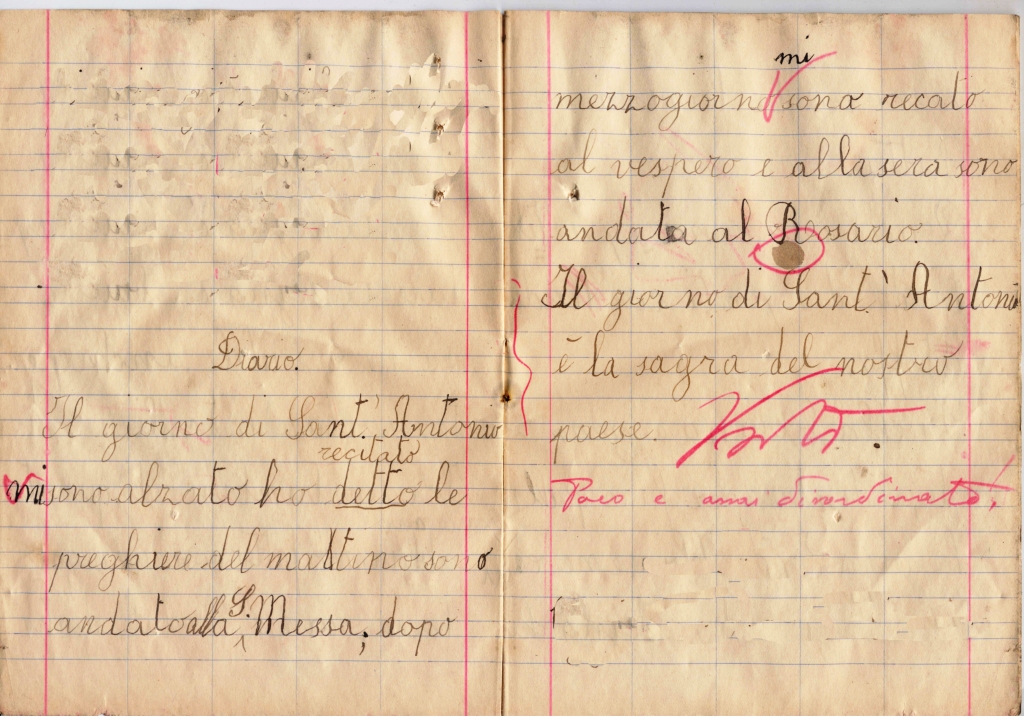 Diario.
Il giorno di Sant' Antonio
recitato
mi sono alzato ho detto le
preghiere del mattino sono
S.
andato alla Messa, dopo
mi
mezzogiorno sono recato
al vespero e alla sera sono
andata al Rosario.
Il giorno di Sant' Antonio
è la sagra del nostro
paese.
Poco e disordinato!